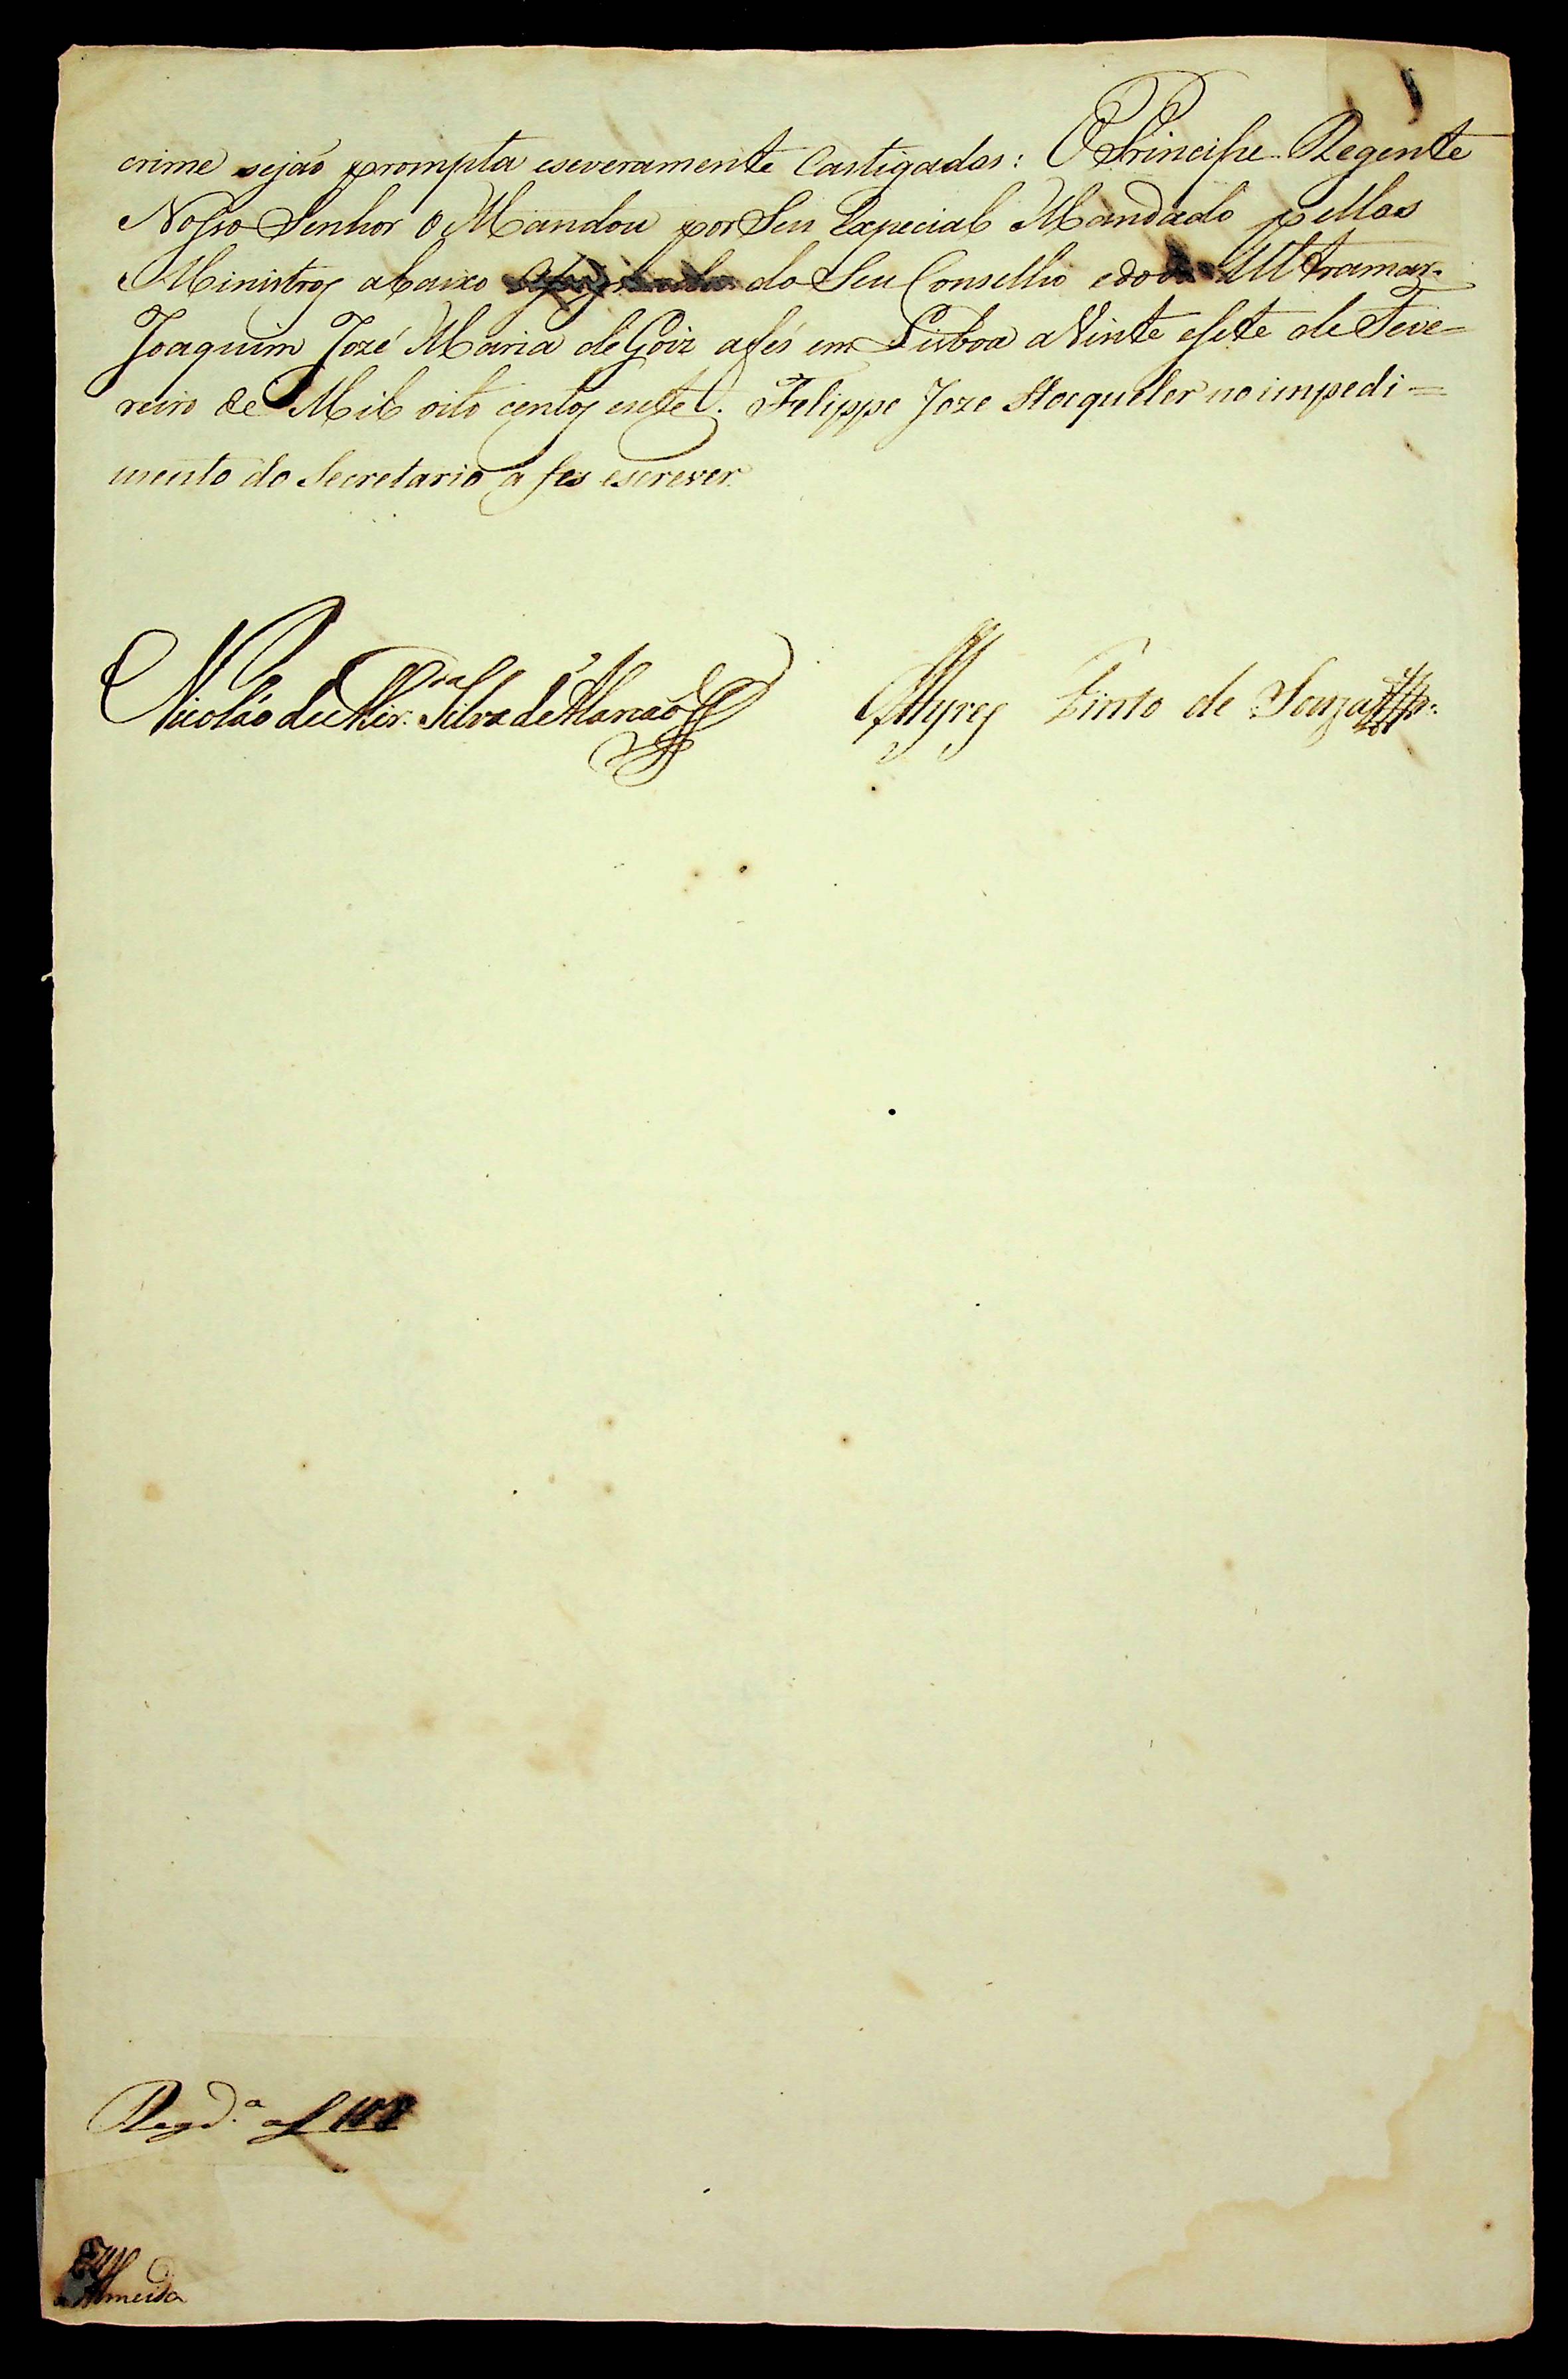 crime sejaõ prompta eseveramente Castigados: O Principe Regente
Nosso Senhor o Mandou por Seu Especial Mandado pellos
Ministros abaixo do Seu Conselho edo Ultramar.
Joaquim Jozé Maria de Goiz afés em Lisboa aVinte esete de Feve=
reiro de Mil oito centos esete. Felippe Joze Stocqueler no impedi=
mento do Secretario a fes escrever.
Nicoláo de Mir.da Silva de Alarcaõ Ayres Pinto de Souza
Regd.a af 108
Almeida